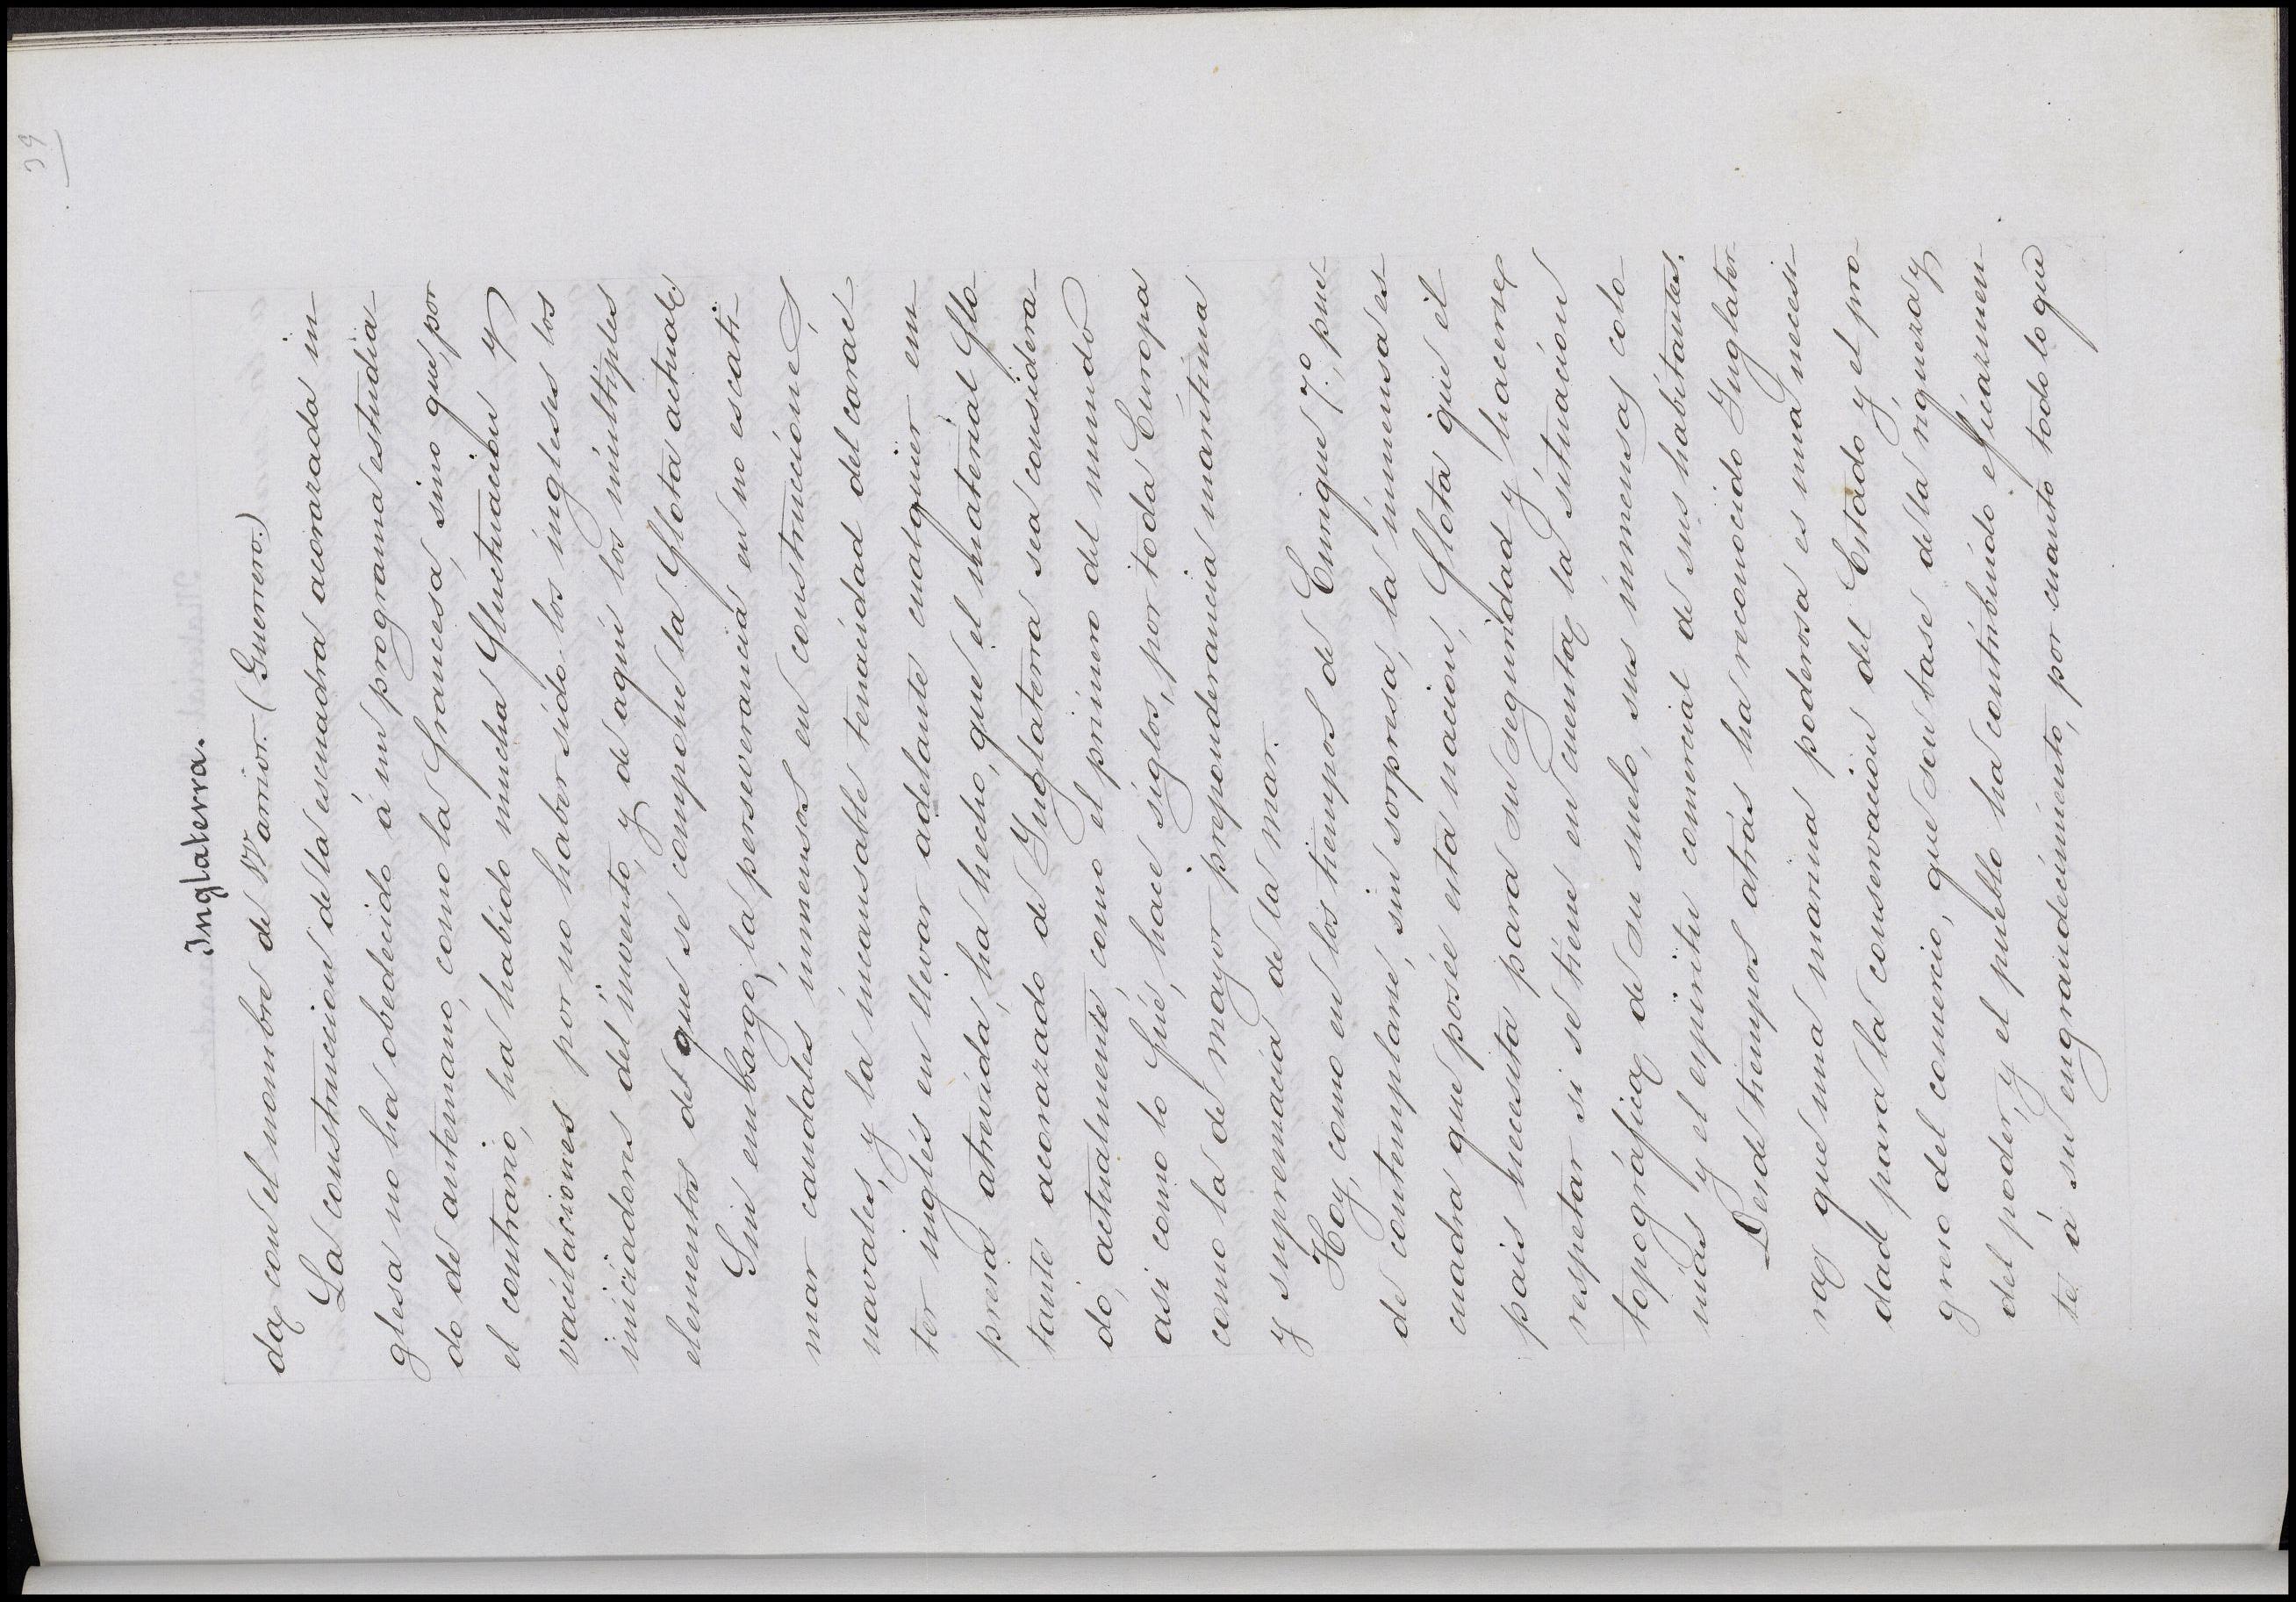 39
Inglaterra.
da con el nombre de Warrior. (Guerrero.)
La construccion de la escuadra acorazada in-
glesa no ha obedecido á un programa estudia-
do de antemano, como la francesa, sino que, por
el contrario, ha habido mucha fluctuacion y
vacilaciones por no haber sido los ingleses los
iniciadores del invento, y de aquí los múltiples
elementos de que se compone la flota actual.
Sin embargo, la perseverancia en no escati-
mar caudales inmensos en construcciones
navales, y la incansable tenacidad del carac-
ter inglés en llevar adelante cualquier em-
presa atrevida, ha hecho, que el material flo-
tante acorazado de Inglaterra sea considera-
do, actualmente, como el primero del mundo
asi como lo fué, hace siglos, por toda Europa
como la de mayor preponderancia maritima
y supremacia de la mar.
Hoy, como en los tiempos de Enrique 7º, pue-
de contemplarse, sin sorpresa, la inmensa es-
cuadra que posée esta nacion, flota que el
pais necesita para su seguridad y hacerse
respetar si se tiene en cuenta la situacion
topográfica de su suelo, sus inmensas colo-
nias y el espiritu comercial de sus habitantes.
Desde tiempos atrás ha reconocido Inglater-
ra que una marina poderosa es una necesi-
dad para la conservacion del Estado y el pro-
greso del comercio, que son base de la riqueza y
del poder, y el pueblo ha contribuido eficazmen-
te á su engrandecimiento, por cuanto todo lo que